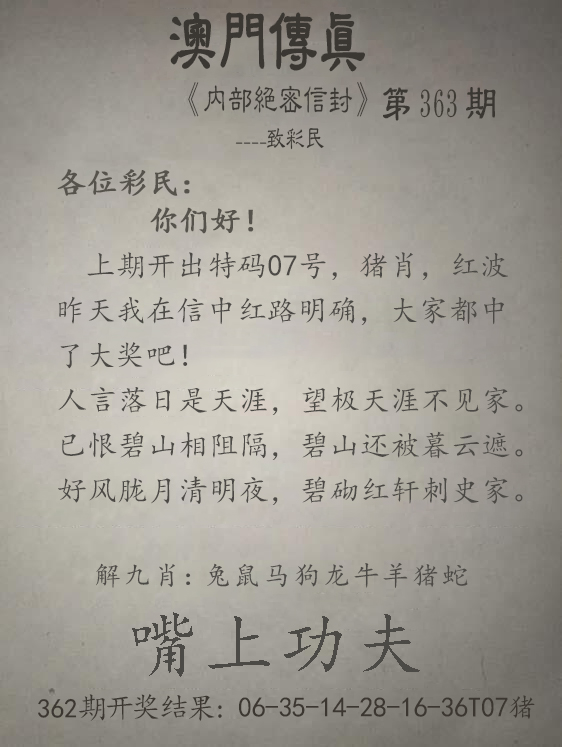 澳門傳真
《内部絕密信封》第363期
----致彩民
各位彩民：
你们好！
上期开出特码07号，猪肖，红波
昨天我在信中红路明确，大家都中
了大奖吧！
人言落日是天涯，望极天涯不见家。
已恨碧山相阻隔，碧山还被暮云遮。
好风胧月清明夜，碧砌红轩刺史家。
解九肖：兔鼠马狗龙牛羊猪蛇
嘴上功夫
362期开奖结果：06-35-14-28-16-36T07猪